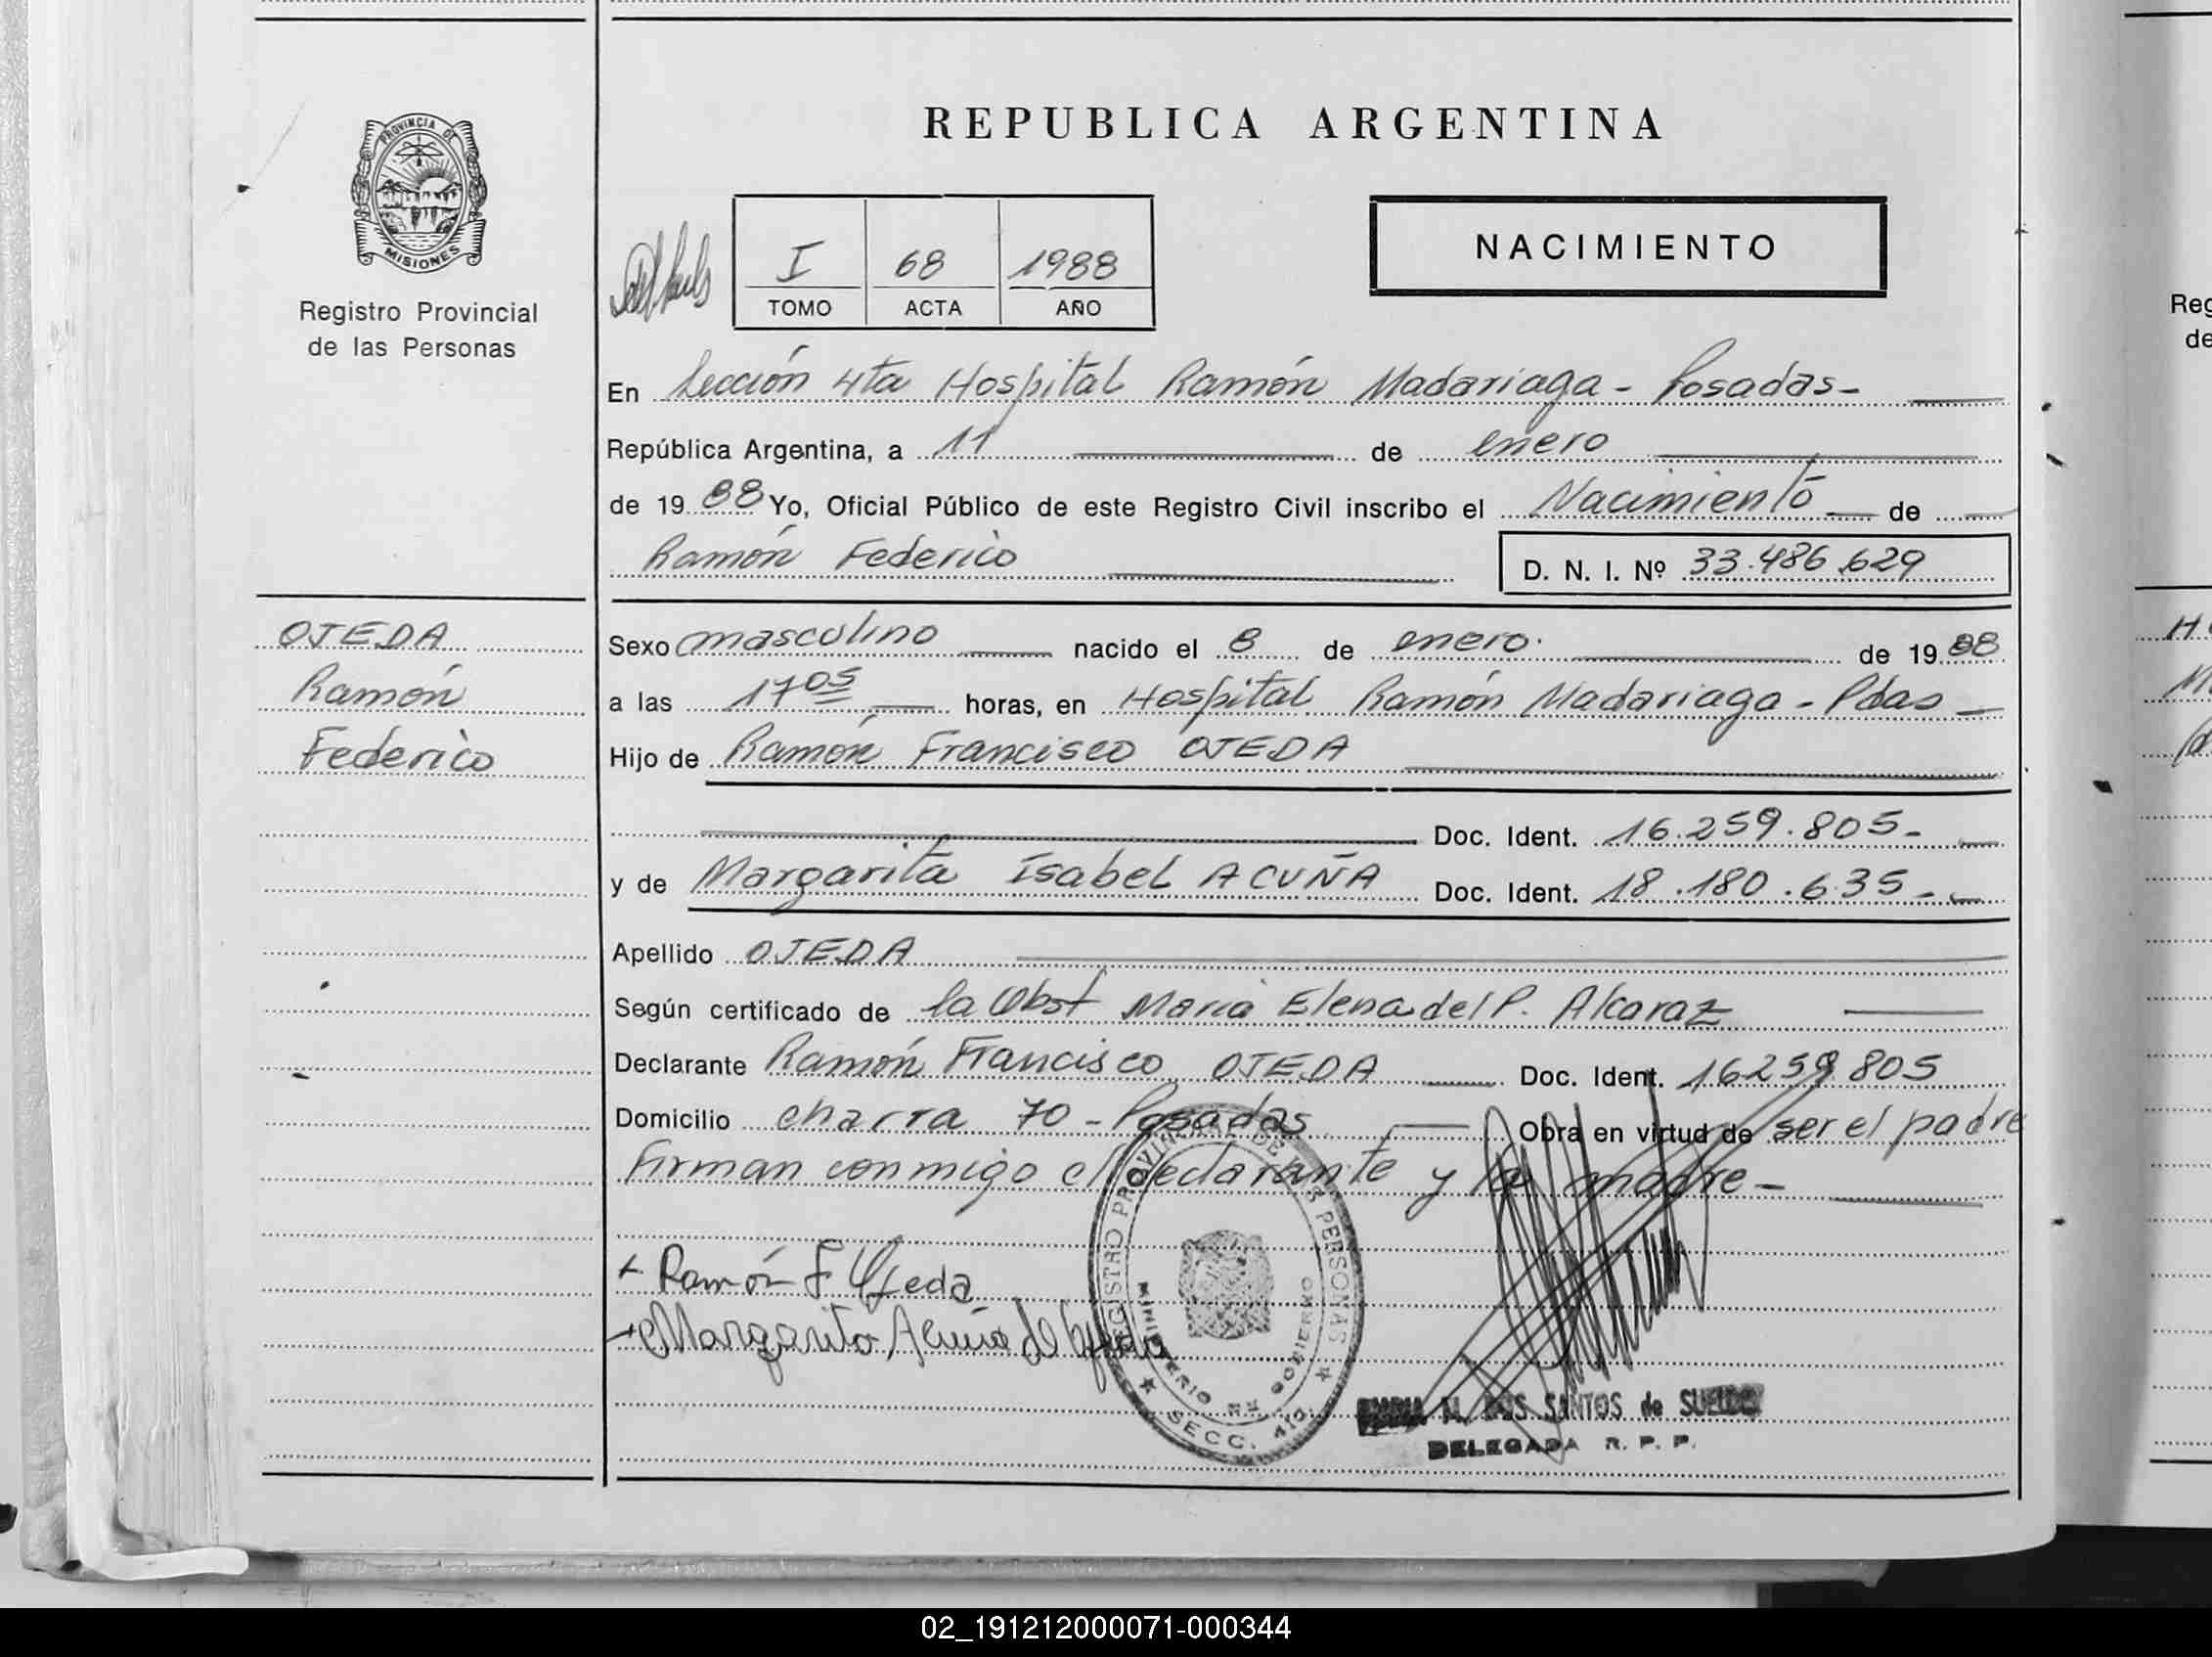 REPUBLICA ARGENTINA
PROVINCIA DE
MISIONES
Registro Provincial
de las Personas
I 68 1988
TOMO ACTA AÑO
NACIMIENTO
En Sección 4ta Hospital Ramón Madariaga - Posadas -
República Argentina, a 11 de enero
de 1988 Yo, Oficial Público de este Registro Civil inscribo el Nacimiento de
Ramón Federico D. N. I. Nº 33.486.629
OJEDA
Ramón
Federico
Sexo masculino nacido el 8 de enero. de 1988
a las 17 05 horas, en Hospital Ramón Madariaga - Pdas
Hijo de Ramón Francisco OJEDA
Doc. Ident. 16.259.805-
y de Margarita Isabel ACUÑA Doc. Ident. 18.180.635-
Apellido OJEDA
Según certificado de la Obst María Elena del P. Alcaraz
Declarante Ramón Francisco OJEDA Doc. Ident. 16259805
Domicilio charra 70 - Posadas Obra en virtud de ser el padre
Firman conmigo el declarante y la madre -
Ramón F Ojeda
Margarita Acuña de Ojeda
REGISTRO PROVINCIAL DE LAS PERSONAS
MINISTERIO DE GOBIERNO
SECC. 4ta.
M. DOS SANTOS de SUELDO
DELEGADA R. P. P.
Reg
de
02_191212000071-000344